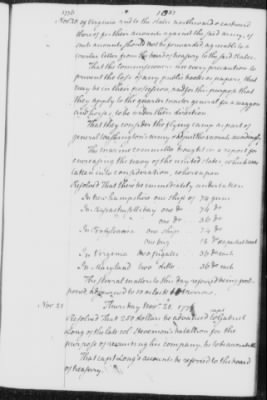 1776
1087
Nov 20. of Virginia and to the states northward & eastward
thereof for their accounts against the said army, if
such accounts should not be forwarded agreeable to a
circular letter from the board of treasury to the said states.
That the Commissioners use every precaution to
prevent the loss of any public books or papers that
may be in their possession and for this purpose that
they apply to the quarter master general for a waggon
and horses, to be under their direction
That they consider the flying camp as part of
general Washington's army & adjust the accounts accordingly.
The marine committee brought in a report for
encreasing the navy of the united states which was
taken into consideration, whereupon
Resolved That there be immediately undertaken
In New hampshire one ship of 74 guns
In Massachusetts bay one do 74 do
one do 36 do
In Pensylvania one ship 74 do
one brig 18 do
In Virginia two frigates 36 do each
In Maryland two ditto 36 do each
The several matters to this day referred being post-
poned adjourned to 10 o clock to morrow.
Nov. 21
Thursday Nov. 21. 1776
Resolved That 250 dollars be advanced to Gabriel
Long of the late col Stevenson's battalion for the
purpose of recruiting his company. he to be accountable
That capt Long's accounts be referred to the board
of treasury.